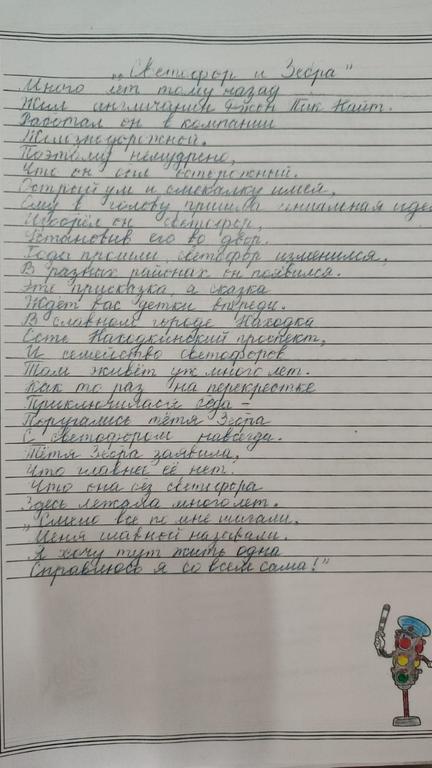 „Светофор и Зебра"
Много лет тому назад
Жил англичанин Джон Пик Найт.
Работал он в компании
Железнодорожной.
Поэтому немудрено,
Что он был осторожный.
Острый ум и смекалку имея,
Ему в голову пришла гениальная идея
Изобрёл он светофор,
Установив его во двор.
Годы прошли, светофор изменился,
В разных районах он появился.
Это присказка, а сказка
Ждёт вас детки впереди.
В славном городе Находка
Есть Находкинский проспект,
И семейство светофоров
Там живёт уж много лет.
Как то раз на перекрестке
Приключилася беда -
Поругались тётя Зебра
С светофором навсегда.
Тётя Зебра заявила,
Что главней её нет.
Что она без светофора
Здесь лежала много лет.
„Смело все по мне шагали,
Меня главный называли.
Я хочу тут жить одна
Справлюсь я со всем сама!"